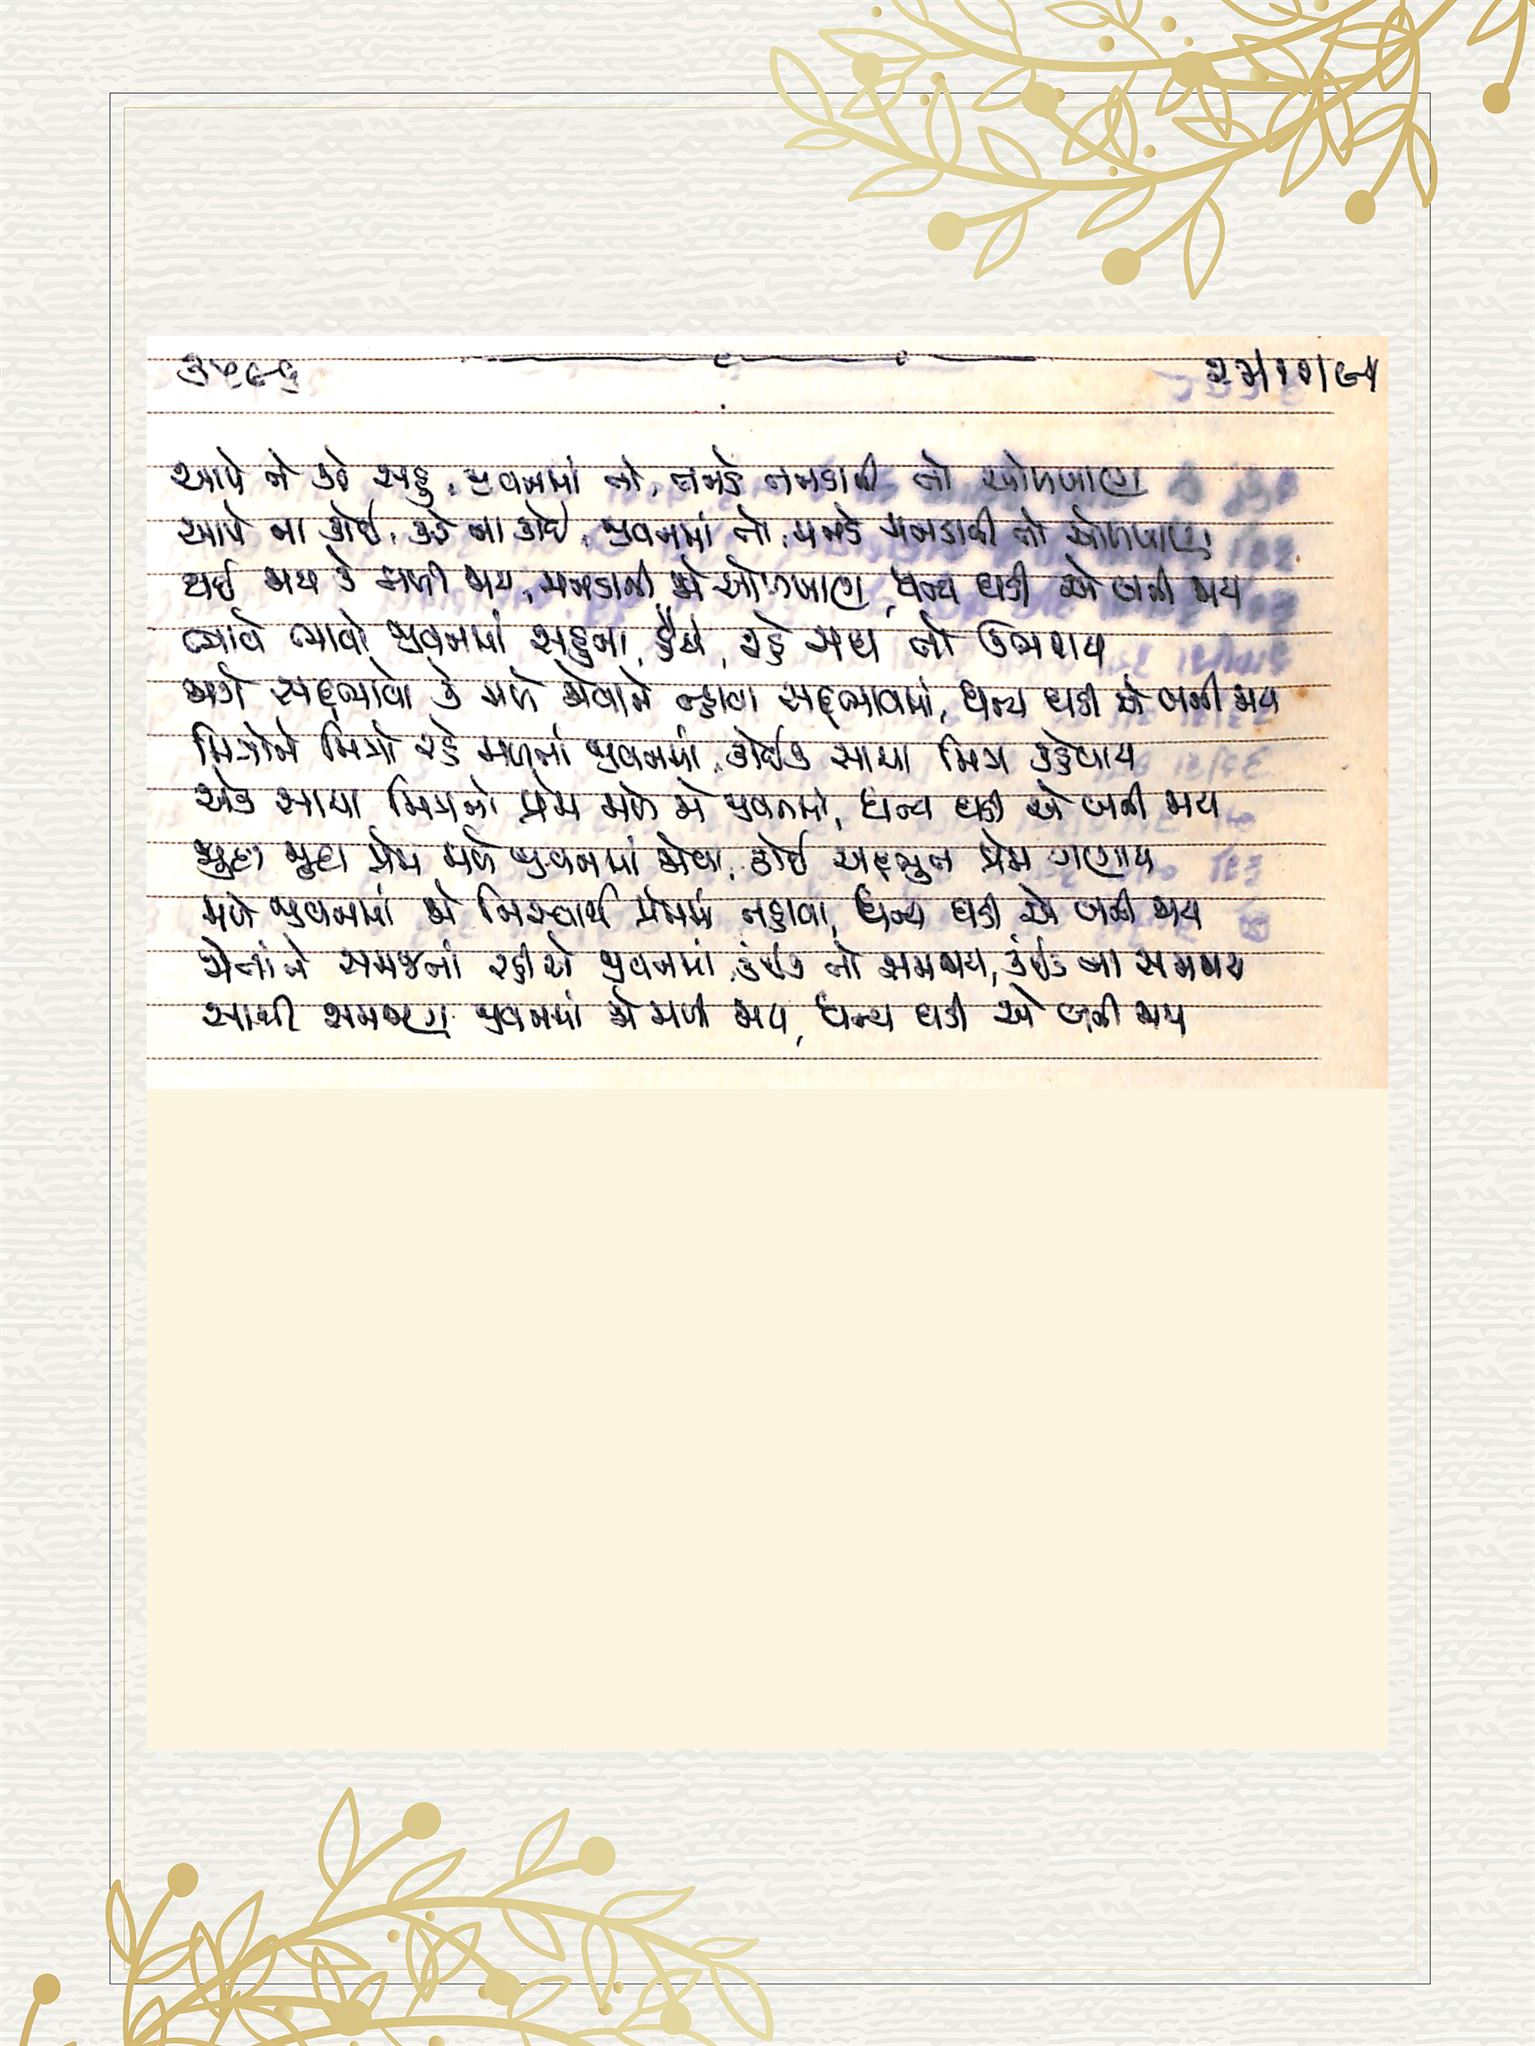 ૩૫૯૬ ૨૩/૧૦/૯૫
આપે ને કરે સહુ, જીવનમાં તો, તનડે તનડાની તો ઓળખાણ
આપે ના કોઈ, કરે ના કોઈ, જીવનમાં તો, મનડે મનડાની તો ઓળખાણ
થઈ જાય કે મળી જાય, મનડાની જો ઓળખાણ, ધન્ય ઘડી એ બની જાય
ભાવે ભાવો જીવનમાં સહુના, હૈયે, રહે સદા તો ઉભરાય
જાગે સદ્ભાવો કે મળે એવાને ન્હાવા સદ્ભાવમાં, ધન્ય ઘડી એ બની જાય
મિત્રોને મિત્રો રહે મળતાં જીવનમાં, કોઈક સાચા મિત્ર કહેવાય
એક સાચા મિત્રનો પ્રેમ મળે જો જીવનમાં, ધન્ય ઘડી એ બની જાય
જુદા જુદા પ્રેમ મળે જીવનમાં એવા, કોઈ અદ્ભુત પ્રેમ ગણાય
મળે જીવનમાં જો નિસ્વાર્થ પ્રેમમાં નહાવા, ધન્ય ઘડી એ બની જાય
એનાંને સમજતાં રહીએ જીવનમાં, કંઈક તો સમજાય, કંઈક ના સમજાય
સાચી સમજણ જીવનમાં જો મળી જાય, ધન્ય ઘડી એ બની જાય